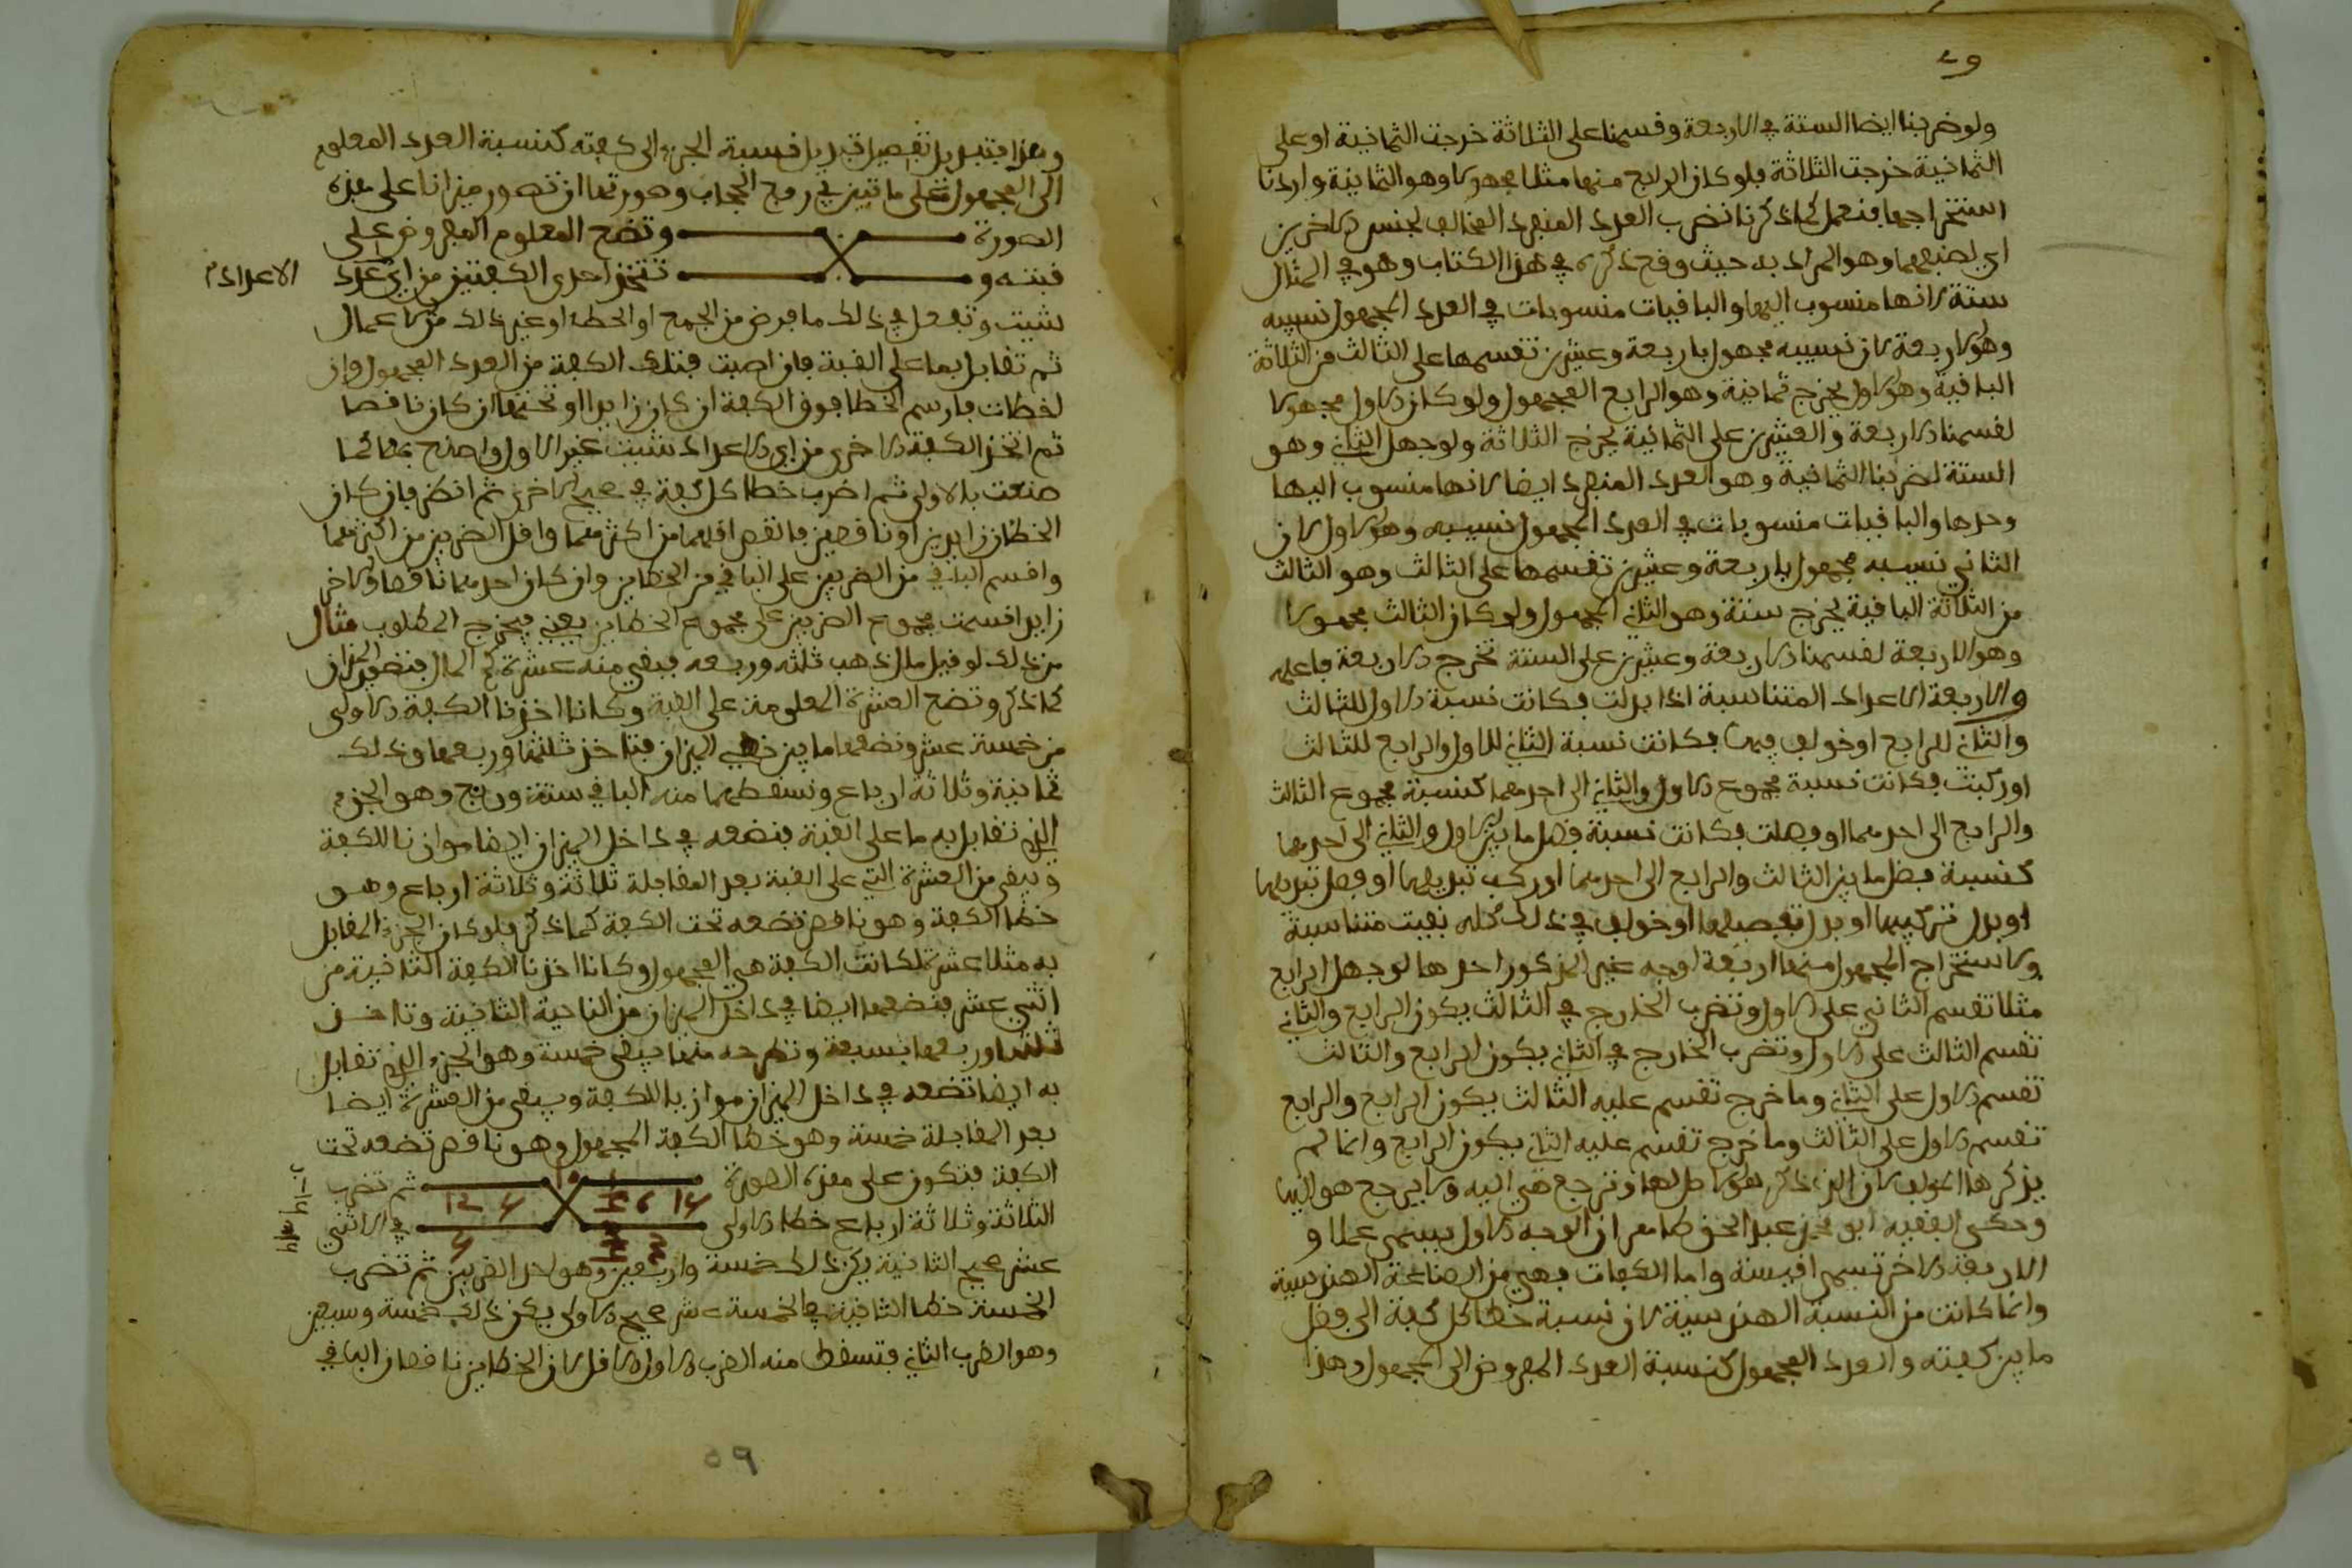 ولو ضربنا ايضا الستة في الاربعة وقسمنا على الثلاثة خرجت الثمانية او على
الثمانية خرجت الثلاثة فلو كان الرابع منها مثلا مجهولا وهو الثمانية واردنا
استخراجها فنعمل كما ذكرنا نضرب العدد المنفرد المخالف لجنس الاخرين
اي لصنفهما وهو المراد به حيث وقع ذكره في هذا الكتاب وهو في المثال
ستة لانها منسوب اليها والباقيات منسوبات في العدد المجهول نسيبه
وهو الاربعة لان نسيبه مجهول باربعة وعشرين تقسمها على الثالث من الثلاثة
الباقية وهو الاول يخرج ثمانية وهو الرابع المجهول ولو كان الاول مجهولا
لقسمنا الاربعة والعشرين على الثمانية يخرج الثلاثة ولو جهل الثاني وهو
الستة لضربنا الثمانية وهو العدد المنفرد ايضا لانها منسوب اليها
وحدها والباقيات منسوبات في العدد المجهول نسيبه وهو الاول لان
الثاني نسيبه مجهول باربعة وعشرين تقسمها على الثالث وهو الثالث
من الثلاثة الباقية يخرج ستة وهو الثاني المجهول ولو كان الثالث مجهولا
وهو الاربعة لقسمنا الاربعة وعشرين على الستة تخرج الاربعة فاعلمه
والاربعة الاعداد المتناسبة اذا بدلت فكانت نسبة الاول للثالث
والثاني للرابع او خولف فيها فكانت نسبة الثاني للاول والرابع للثالث
او ركبت فكانت نسبة مجموع الاول والثاني الى احدهما كنسبة مجموع الثالث
والرابع الى احدهما او فصلت فكانت نسبة فضل ما بين الاول والثاني الى احدهما
كنسبة فضل ما بين الثالث والرابع الى احدهما او ركب تبديلها او فصل تبديلها
او بدل تركيبها او بدل تفصيلها او خولف في ذلك كله بقيت متناسبة
ولاستخراج المجهول منها اربعة اوجه غير المذكور احدها لو جهل الرابع
مثلا تقسم الثاني على الاول وتضرب الخارج في الثالث يكون الرابع والثاني
تقسم الثالث على الاول وتضرب الخارج في الثاني يكون الرابع والثالث
تقسم الاول على الثاني وما خرج تقسم عليه الثالث يكون الرابع والرابع
تقسم الاول على الثالث وما خرج تقسم عليه الثاني يكون الرابع وانما لم
يذكرها المولف لان الذي ذكر هو الاصل لها وترجع هي اليه ولا يرجع هو اليها
وحكى الفقيه ابو محمد عبد الحق ان الوجه الاول يسمى عملا و
الاربعة الاخر تسمى اقيسة واما الكفات فهي من الصناعة الهندسية
وانما كانت من النسبة الهندسية لان نسبة خطا كل كفة الى فضل
ما بين كفته والعدد المجهول كنسبة العدد المفروض الى المجهول وهذا
الى المجهول على ما تبين في رفع الحجاب وصورتها ان تصور ميزانا على هذه
الصورة وتضع المعلوم المفروض على
قبته و تتخذ احدى الكفتين من اي عدد الاعداد
شيت وتفعل في ذلك ما فرض من الجمع او الحط او غير ذلك من الاعمال
ثم تقابل بها على القبة فان اصبت فتلك الكفة من العدد المجهول وان
اخطات فارسم الخطا فوق الكفة ان كان زايدا او تحتها ان كان ناقصا
ثم اتخذ الكفة الاخرى من اي الاعداد شيت غير الاول واصنع بها كما
صنعت بالاولى ثم اضرب خطا كل كفة في صحيح الاخرى ثم انظر فان كان
الخطان زايدين او ناقصين فانقص اقلهما من اكثرهما واقل الضربين من اكثرهما
واقسم الباقي من الضربين على الباقي من الخطاين وان كان احدهما ناقصا والاخر
زايدا قسمت مجموع الضربين على مجموع الخطاين يعني فيخرج المطلوب مثال
من ذلك لو قيل مال ذهب ثلثه وربعه فبقي منه عشرة كم المال فنضع الميزان
كما ذكر ونضع العشرة المعلومة على القبة وكانا اخذنا الكفة الاولى
من خمسة عشر ونضعها ما بين خطي الميزان فناخذ ثلثها وربعها وذلك
ثمانية وثلاثة ارباع ونسقطهما منه الباقي ستة وربع وهو الجزء
الذي تقابل به ما على القبة فنضعه في داخل الميزان ايضا موازيا للكفة
ويبقى من العشرة التي على القبة بعد المقابلة ثلاثة وثلاثة ارباع وهو
خطا الكفة وهو ناقص نضعه تحت الكفة كما ذكر فلو كان الجزء المقابل
به مثلا عشرة لكانت الكفة هي المجهول وكانا اخذنا الكفة الثانية من
اثني عشر فنضعها ايضا في داخل الميزان من الناحية الثانية وناخذ
ثلثها وربعها بسبعة ونطرحه منها يبقى خمسة وهو الجزء الذي تقابل
به ايضا تضعه في داخل الميزان موازيا للكفة ويبقى من العشرة ايضا
بعد المقابلة خمسة وهو خطا الكفة المجهول وهو ناقص تضعه تحت
الكفة فتكون على هذه الصورة ثم تضرب
الثلاثة وثلاثة ارباع خطا الاولى في الاثني
عشر صحيح الثانية يكن ذلك خمسة واربعين وهو احد الضربين ثم تضرب
الخمسة خطا الثانية في الخمسة عشر صحيح الاولى يكن ذلك خمسة وسبعين
وهو الضرب الثاني فتسقط منه الضرب الاول الاقل لان الخطاين ناقصان الباقي
٥٩